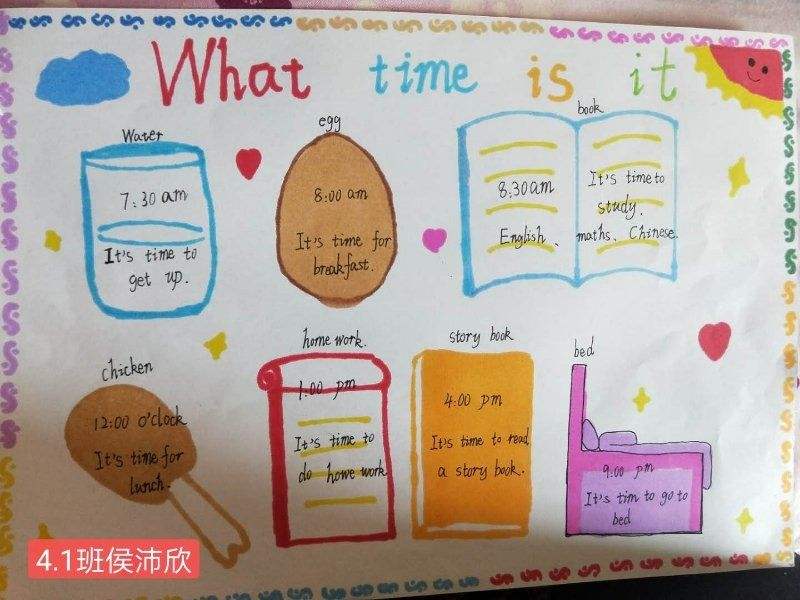 What time is it
Water
7:30 am
It's time to
get up.
egg
8:00 am
It's time for
breakfast.
book
8:30 am
English、
It's time to
study.
maths、Chinese.
chicken
12:00 o'clock
It's time for
lunch.
home work.
1:00 pm
It's time to
do howe work
story book
4:00 pm
It's time to read
a story book.
bed
9:00 pm
It's tim to go to
bed
4.1班侯沛欣